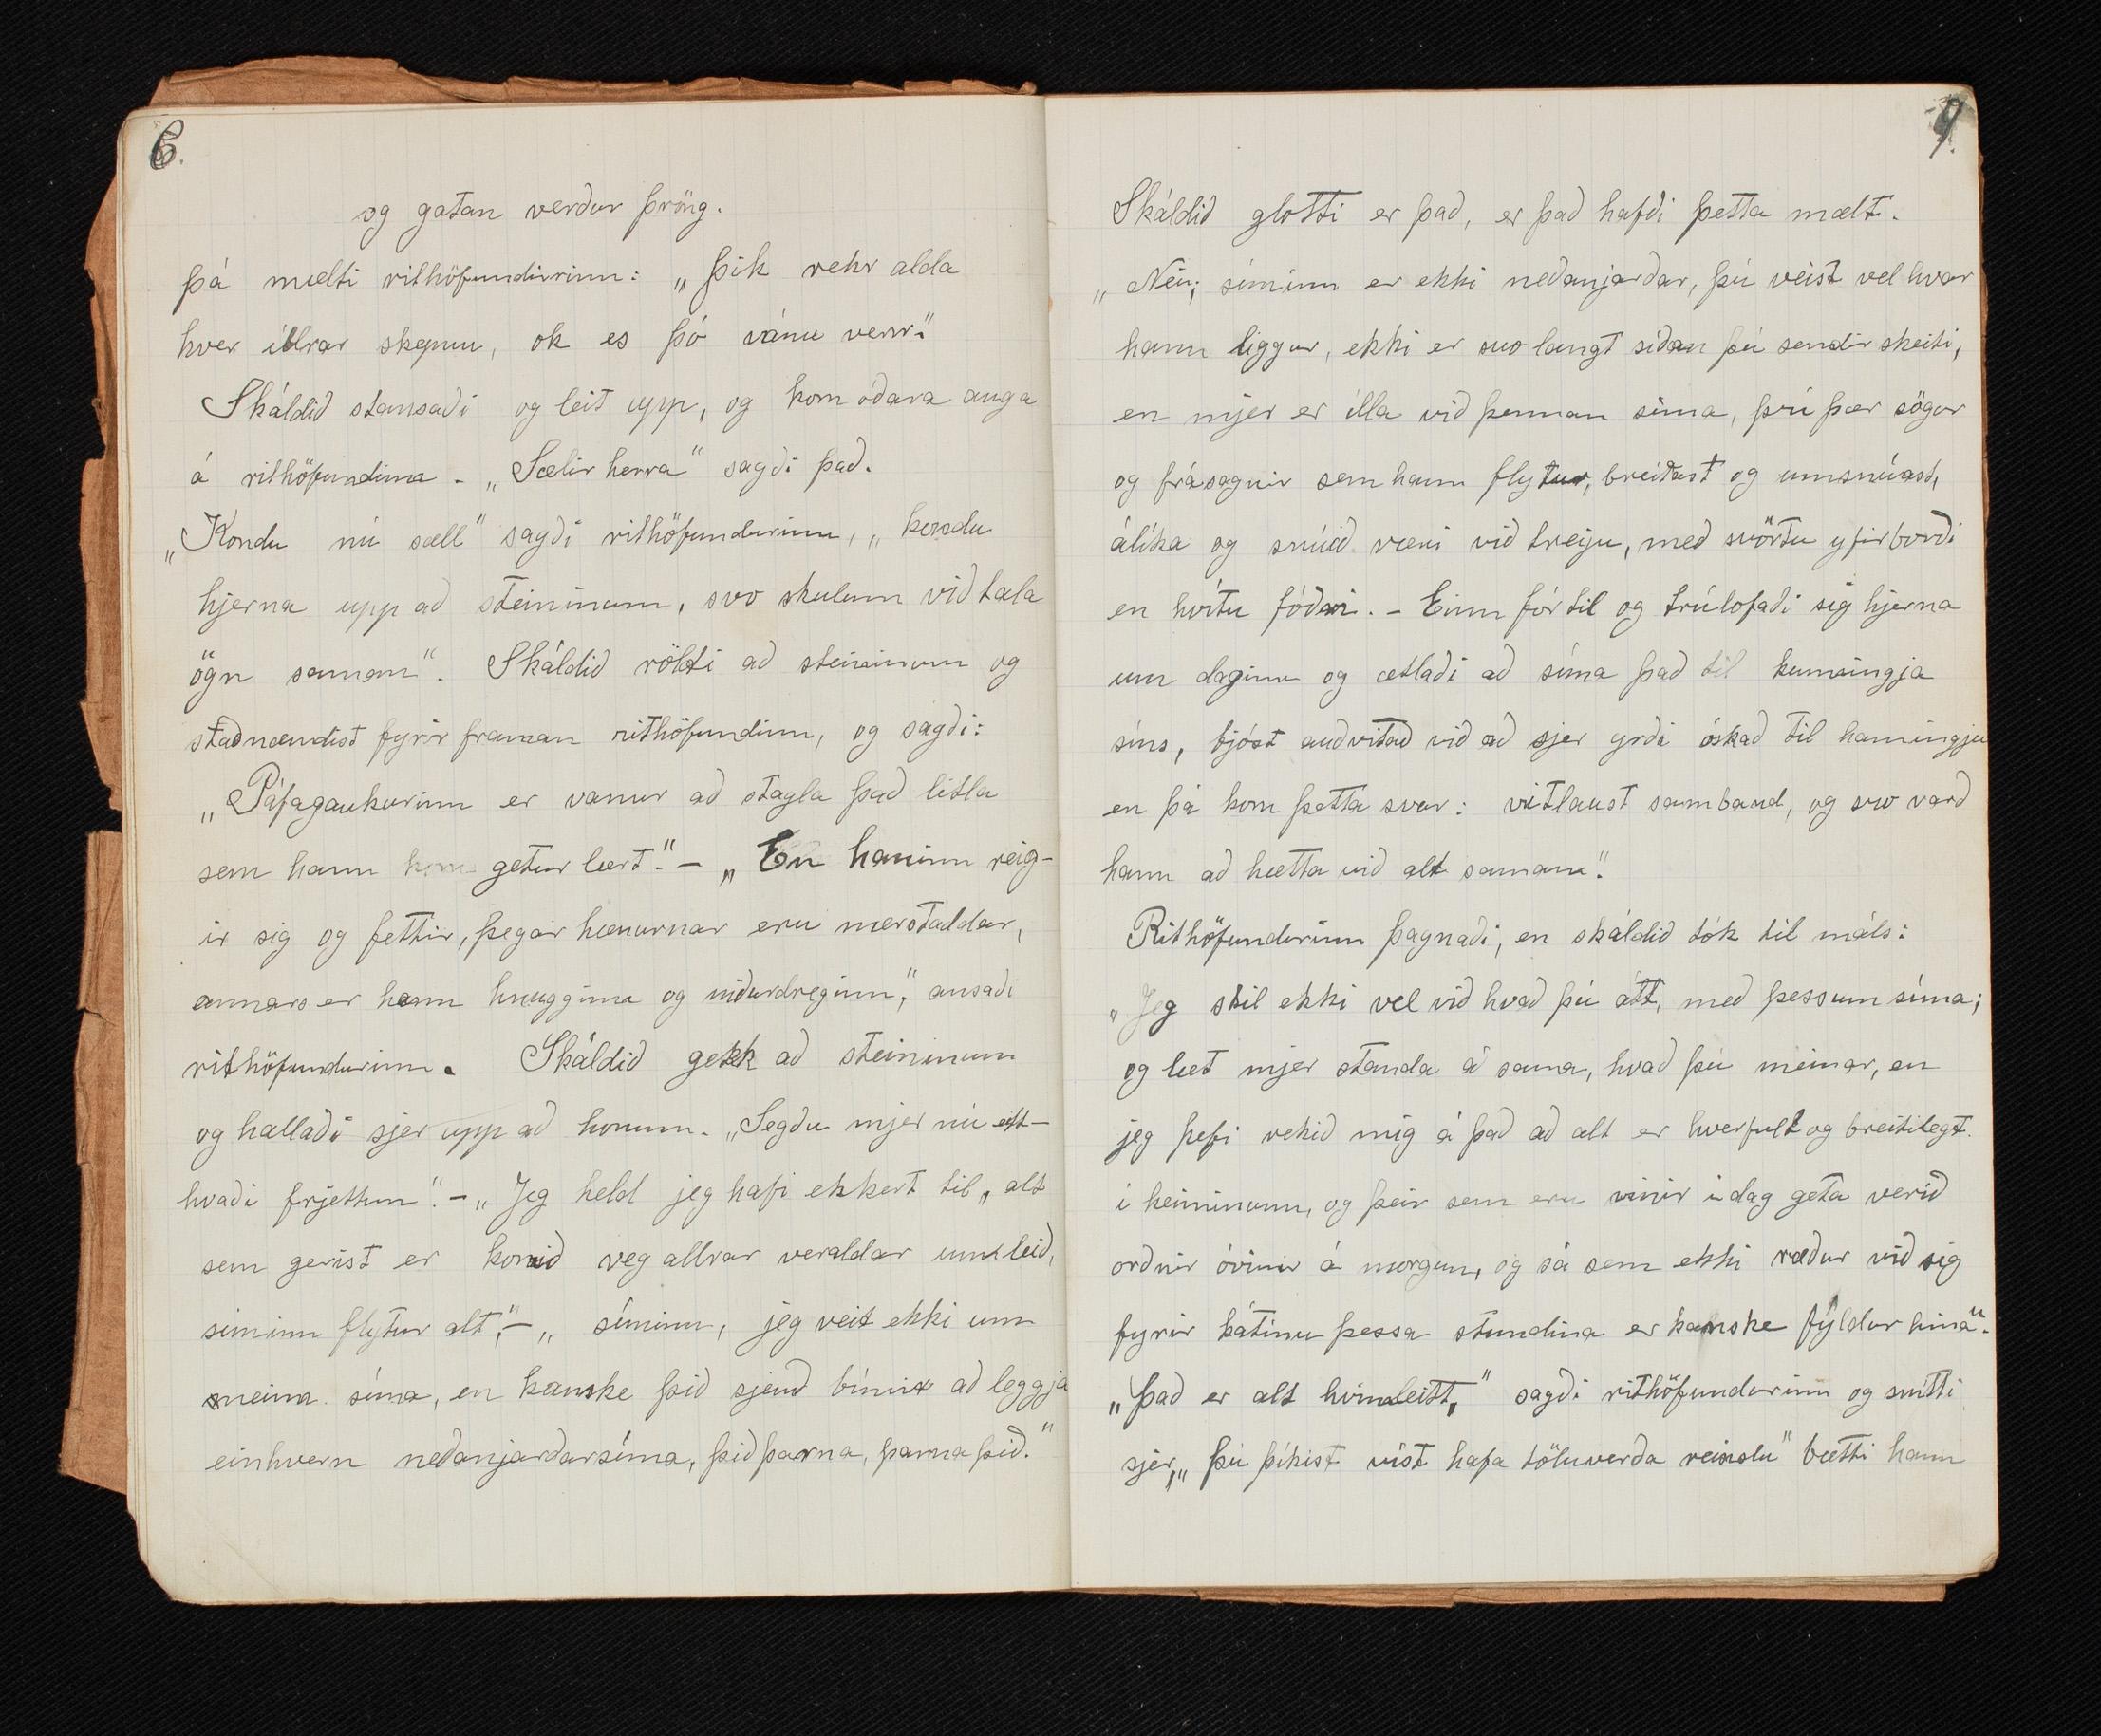 6.
og gatan verður þröng.
Þá mælti rithöfundurinn: „Þik rekr alda
hver illrar skepnu, ok es þó vánu verr."
Skáldið stansaði og leit upp, og kom óðara auga
á rithöfundinn - „Sælir herra" sagði það.
„Kondu nú sæll" sagði rithöfundurinn, „kondu
hjerna upp að steininum, svo skulum við tala
ögn saman". Skáldið rölti að steininum og
staðnæmdist fyrir framan rithöfundinn, og sagði:
„Páfagaukurinn er vanur að stagla það litla
sem hann getur lært." - „En haninn reig-
ir sig og fettir, þegar hænurnar eru
annars er hann hnugginn og niðurdreginn", ansaði
rithöfundurinn. Skáldið gekk að steininum
og hallaði sjer upp að honum. „Segðu mjer nú eitt-
hvað í frjettum". - „Jeg held jeg hafi ekkert til, alt
sem gerist er komið veg allrar veraldar um leið,
síminn flytur alt", - „síminn, jeg veit ekki um
neinn síma, en kanske þið sjeuð búnir að leggja
einhvern neðanjarðarsíma, þið þarna, þarna þið."
7.
Skáldið glotti er það, er það hafði þetta mælt.
„Nei; síminn er ekki neðanjarðar, þú veist vel hvar
hann liggur, ekki er svo langt síðan þú sendir skeiti,
en mjer er illa við þennan síma, því þær sögur
og frásagnir sem hann flytur, breitast og umsnúast,
álíka og snúið væri við treiju, með svörtu yfirborði
en hvítu fóðri. - Einn fór til og trúlofaði sig hjerna
um daginn og ætlaði að síma það til kunningja
síns, bjóst auðvitað við að sjer yrði óskað til hamingju
en þá kom þetta svar: vitlaust samband, og svo varð
hann að hætta við alt saman".
Rithöfundurinn þagnaði, en skáldið tók til máls:
„Jeg skil ekki vel við hvað þú átt, með þessum síma;
og læt mjer standa á sama, hvað þú meinar, en
jeg þefi rekið mig á það að alt er hverfult og breitilegt.
í heiminum, og þeir sem eru vinir í dag geta verið
orðnir óvinir á morgun, og sá sem ekki ræður við sig
fyrir kátínu þessa stundina er kanske fýldur hina".
„Það er alt hvimleitt," sagði rithöfundurinn og snítti
sjer, „þú þikist víst hafa töluverða reinslu" bætti hann